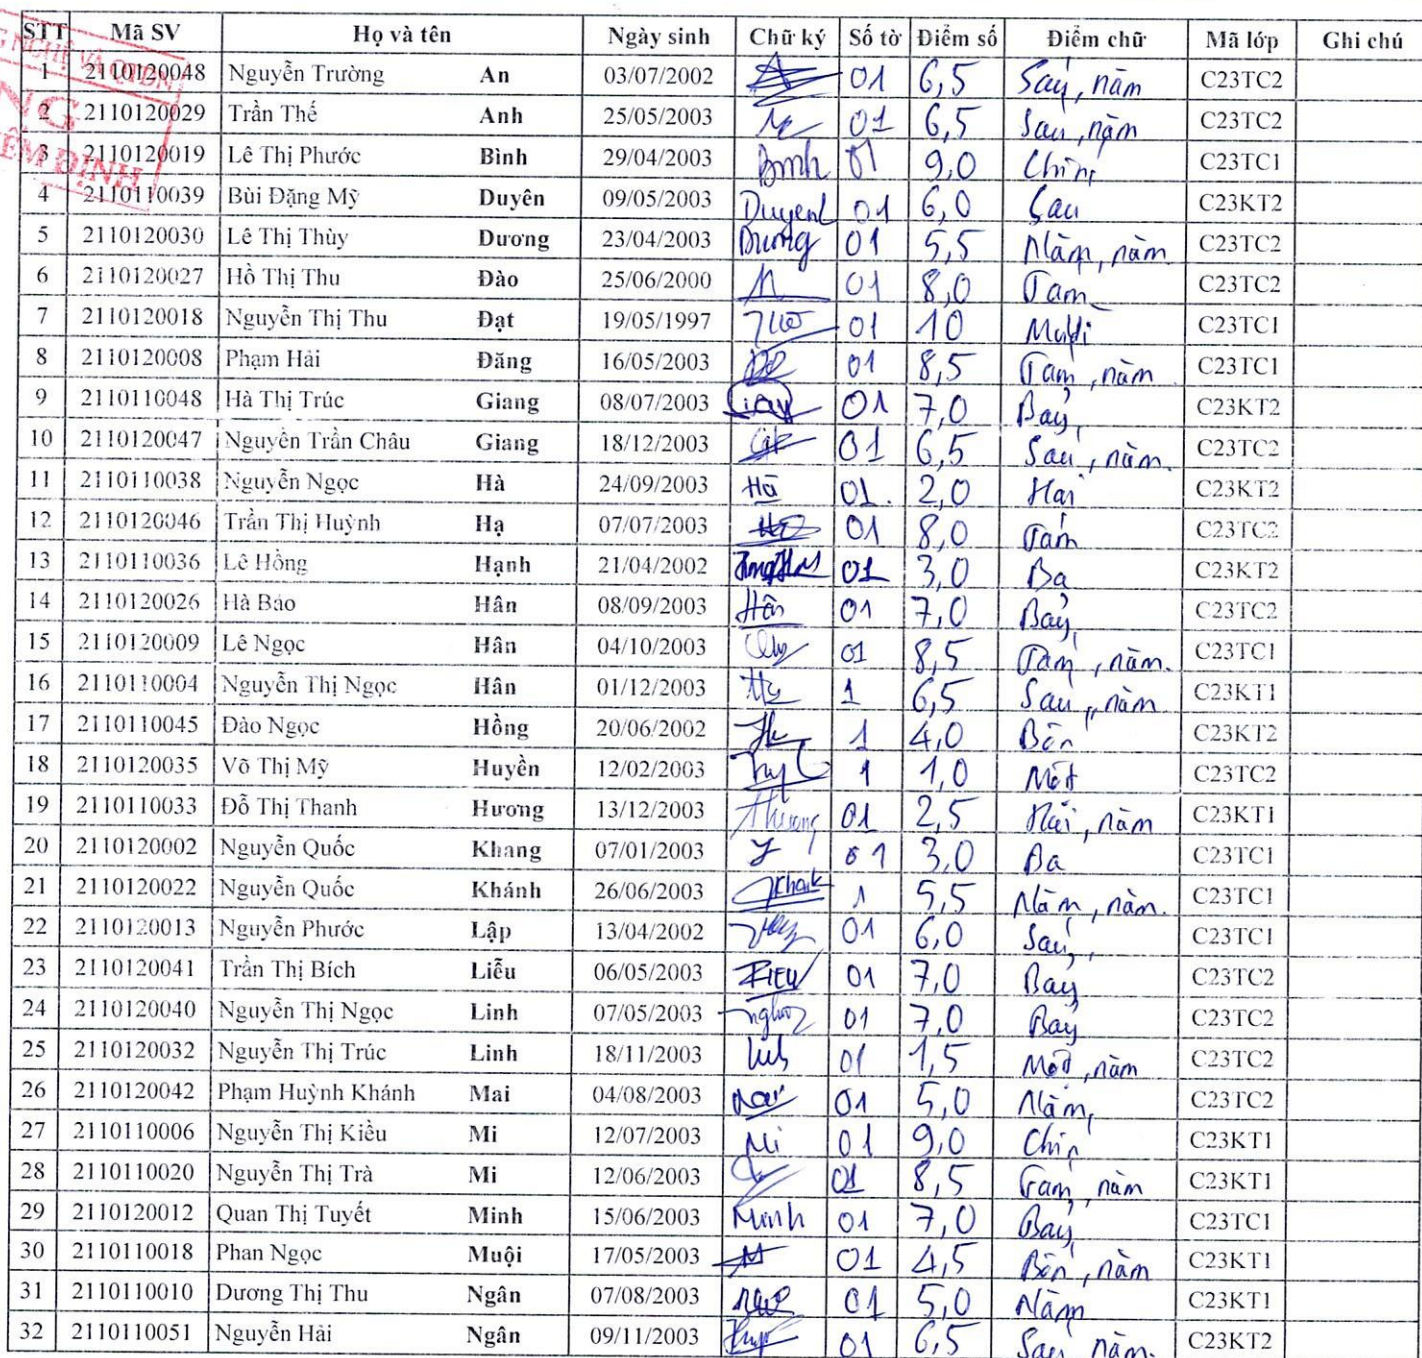 STT Mã SV Họ và tên Ngày sinh Chữ ký Số tờ Điểm số Điểm chữ Mã lớp Ghi chú
1 2110120048 Nguyễn Trường An 03/07/2002 01 6,5 Sáu, năm C23TC2
2 2110120029 Trần Thế Anh 25/05/2003 01 6,5 Sáu, năm C23TC2
3 2110120019 Lê Thị Phước Bình 29/04/2003 Bình 01 9,0 Chín C23TC1
4 2110110039 Bùi Đặng Mỹ Duyên 09/05/2003 Duyen 01 6,0 Sáu C23KT2
5 2110120030 Lê Thị Thùy Dương 23/04/2003 Dương 01 5,5 Năm, năm C23TC2
6 2110120027 Hồ Thị Thu Đào 25/06/2000 01 8,0 Tám C23TC2
7 2110120018 Nguyễn Thị Thu Đạt 19/05/1997 01 10 Mười C23TC1
8 2110120008 Phạm Hải Đăng 16/05/2003 01 8,5 Tám, năm C23TC1
9 2110110048 Hà Thị Trúc Giang 08/07/2003 01 7,0 Bảy C23KT2
10 2110120047 Nguyễn Trần Châu Giang 18/12/2003 01 6,5 Sáu, năm. C23TC2
11 2110110038 Nguyễn Ngọc Hà 24/09/2003 Hà 01. 2,0 Hai C23KT2
12 2110120046 Trần Thị Huỳnh Hạ 07/07/2003 01 8,0 Tám C23TC2
13 2110110036 Lê Hồng Hạnh 21/04/2002 01 3,0 Ba C23KT2
14 2110120026 Hà Bảo Hân 08/09/2003 Hân 01 7,0 Bảy C23TC2
15 2110120009 Lê Ngọc Hân 04/10/2003 01 8,5 Tám, năm. C23TC1
16 2110110004 Nguyễn Thị Ngọc Hân 01/12/2003 1 6,5 Sáu, năm C23KT1
17 2110110045 Đào Ngọc Hồng 20/06/2002 1 4,0 Bốn C23KT2
18 2110120035 Võ Thị Mỹ Huyền 12/02/2003 1 1,0 Một C23TC2
19 2110110033 Đỗ Thị Thanh Hương 13/12/2003 01 2,5 Hai, năm C23KT1
20 2110120002 Nguyễn Quốc Khang 07/01/2003 01 3,0 Ba C23TC1
21 2110120022 Nguyễn Quốc Khánh 26/06/2003 1 5,5 Năm, năm. C23TC1
22 2110120013 Nguyễn Phước Lập 13/04/2002 01 6,0 Sáu C23TC1
23 2110120041 Trần Thị Bích Liễu 06/05/2003 01 7,0 Bảy C23TC2
24 2110120040 Nguyễn Thị Ngọc Linh 07/05/2003 01 7,0 Bảy C23TC2
25 2110120032 Nguyễn Thị Trúc Linh 18/11/2003 01 1,5 Một, năm C23TC2
26 2110120042 Phạm Huỳnh Khánh Mai 04/08/2003 01 5,0 Năm C23TC2
27 2110110006 Nguyễn Thị Kiều Mi 12/07/2003 Mi 01 9,0 Chín C23KT1
28 2110110020 Nguyễn Thị Trà Mi 12/06/2003 01 8,5 Tám, năm C23KT1
29 2110120012 Quan Thị Tuyết Minh 15/06/2003 Minh 01 7,0 Bảy C23TC1
30 2110110018 Phan Ngọc Muội 17/05/2003 01 4,5 Bốn, năm C23KT1
31 2110110010 Dương Thị Thu Ngân 07/08/2003 01 5,0 Năm C23KT1
32 2110110051 Nguyễn Hải Ngân 09/11/2003 01 6,5 Sáu, năm. C23KT2